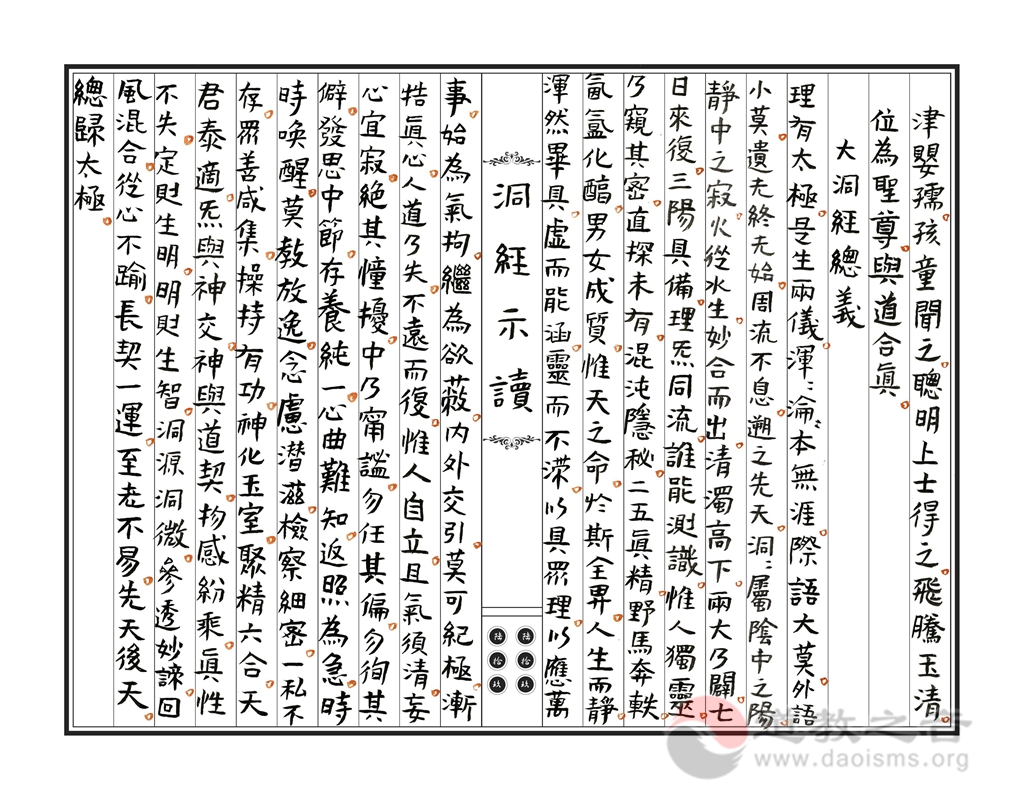 津嬰孺孩童聞之聰明上士得之飛騰玉清
位為聖尊與道合眞
大洞經總義
理有太極是生兩儀渾：淪：本無涯際語大莫外語
小莫遺无終无始周流不息遡之先天洞：屬陰中之陽
靜中之寂火從水生妙合而出清濁高下兩大乃闢七
日來復三陽具備理炁同流誰能測識惟人獨靈
乃窺其密直探未有混沌隱秘二五眞精野馬奔軼
氤氳化醕男女成質惟天之命於斯全畀人生而靜
渾然畢具虛而能涵靈而不滓以具眾理以應萬
洞經示讀
陸
拾
玖
陸
拾
玖
事始為氣拘繼為欲蔽內外交引莫可紀極漸
牿眞心人道乃失不遠而復惟人自立且氣須清妄
心宜寂絕其憧擾中乃甯謐勿任其偏勿徇其
僻發思中節存養純一心曲難知返照為急時
時喚醒莫教放逸念慮潛滋檢察細密一私不
存眾善咸集操持有功神化玉室聚精六合天
君泰適炁與神交神與道契物感紛乘眞性
不失定則生明明則生智洞源洞微參透妙諦回
風混合從心不踰長契一運至老不易先天後天
總歸太極
道教之音
www.daoisms.org